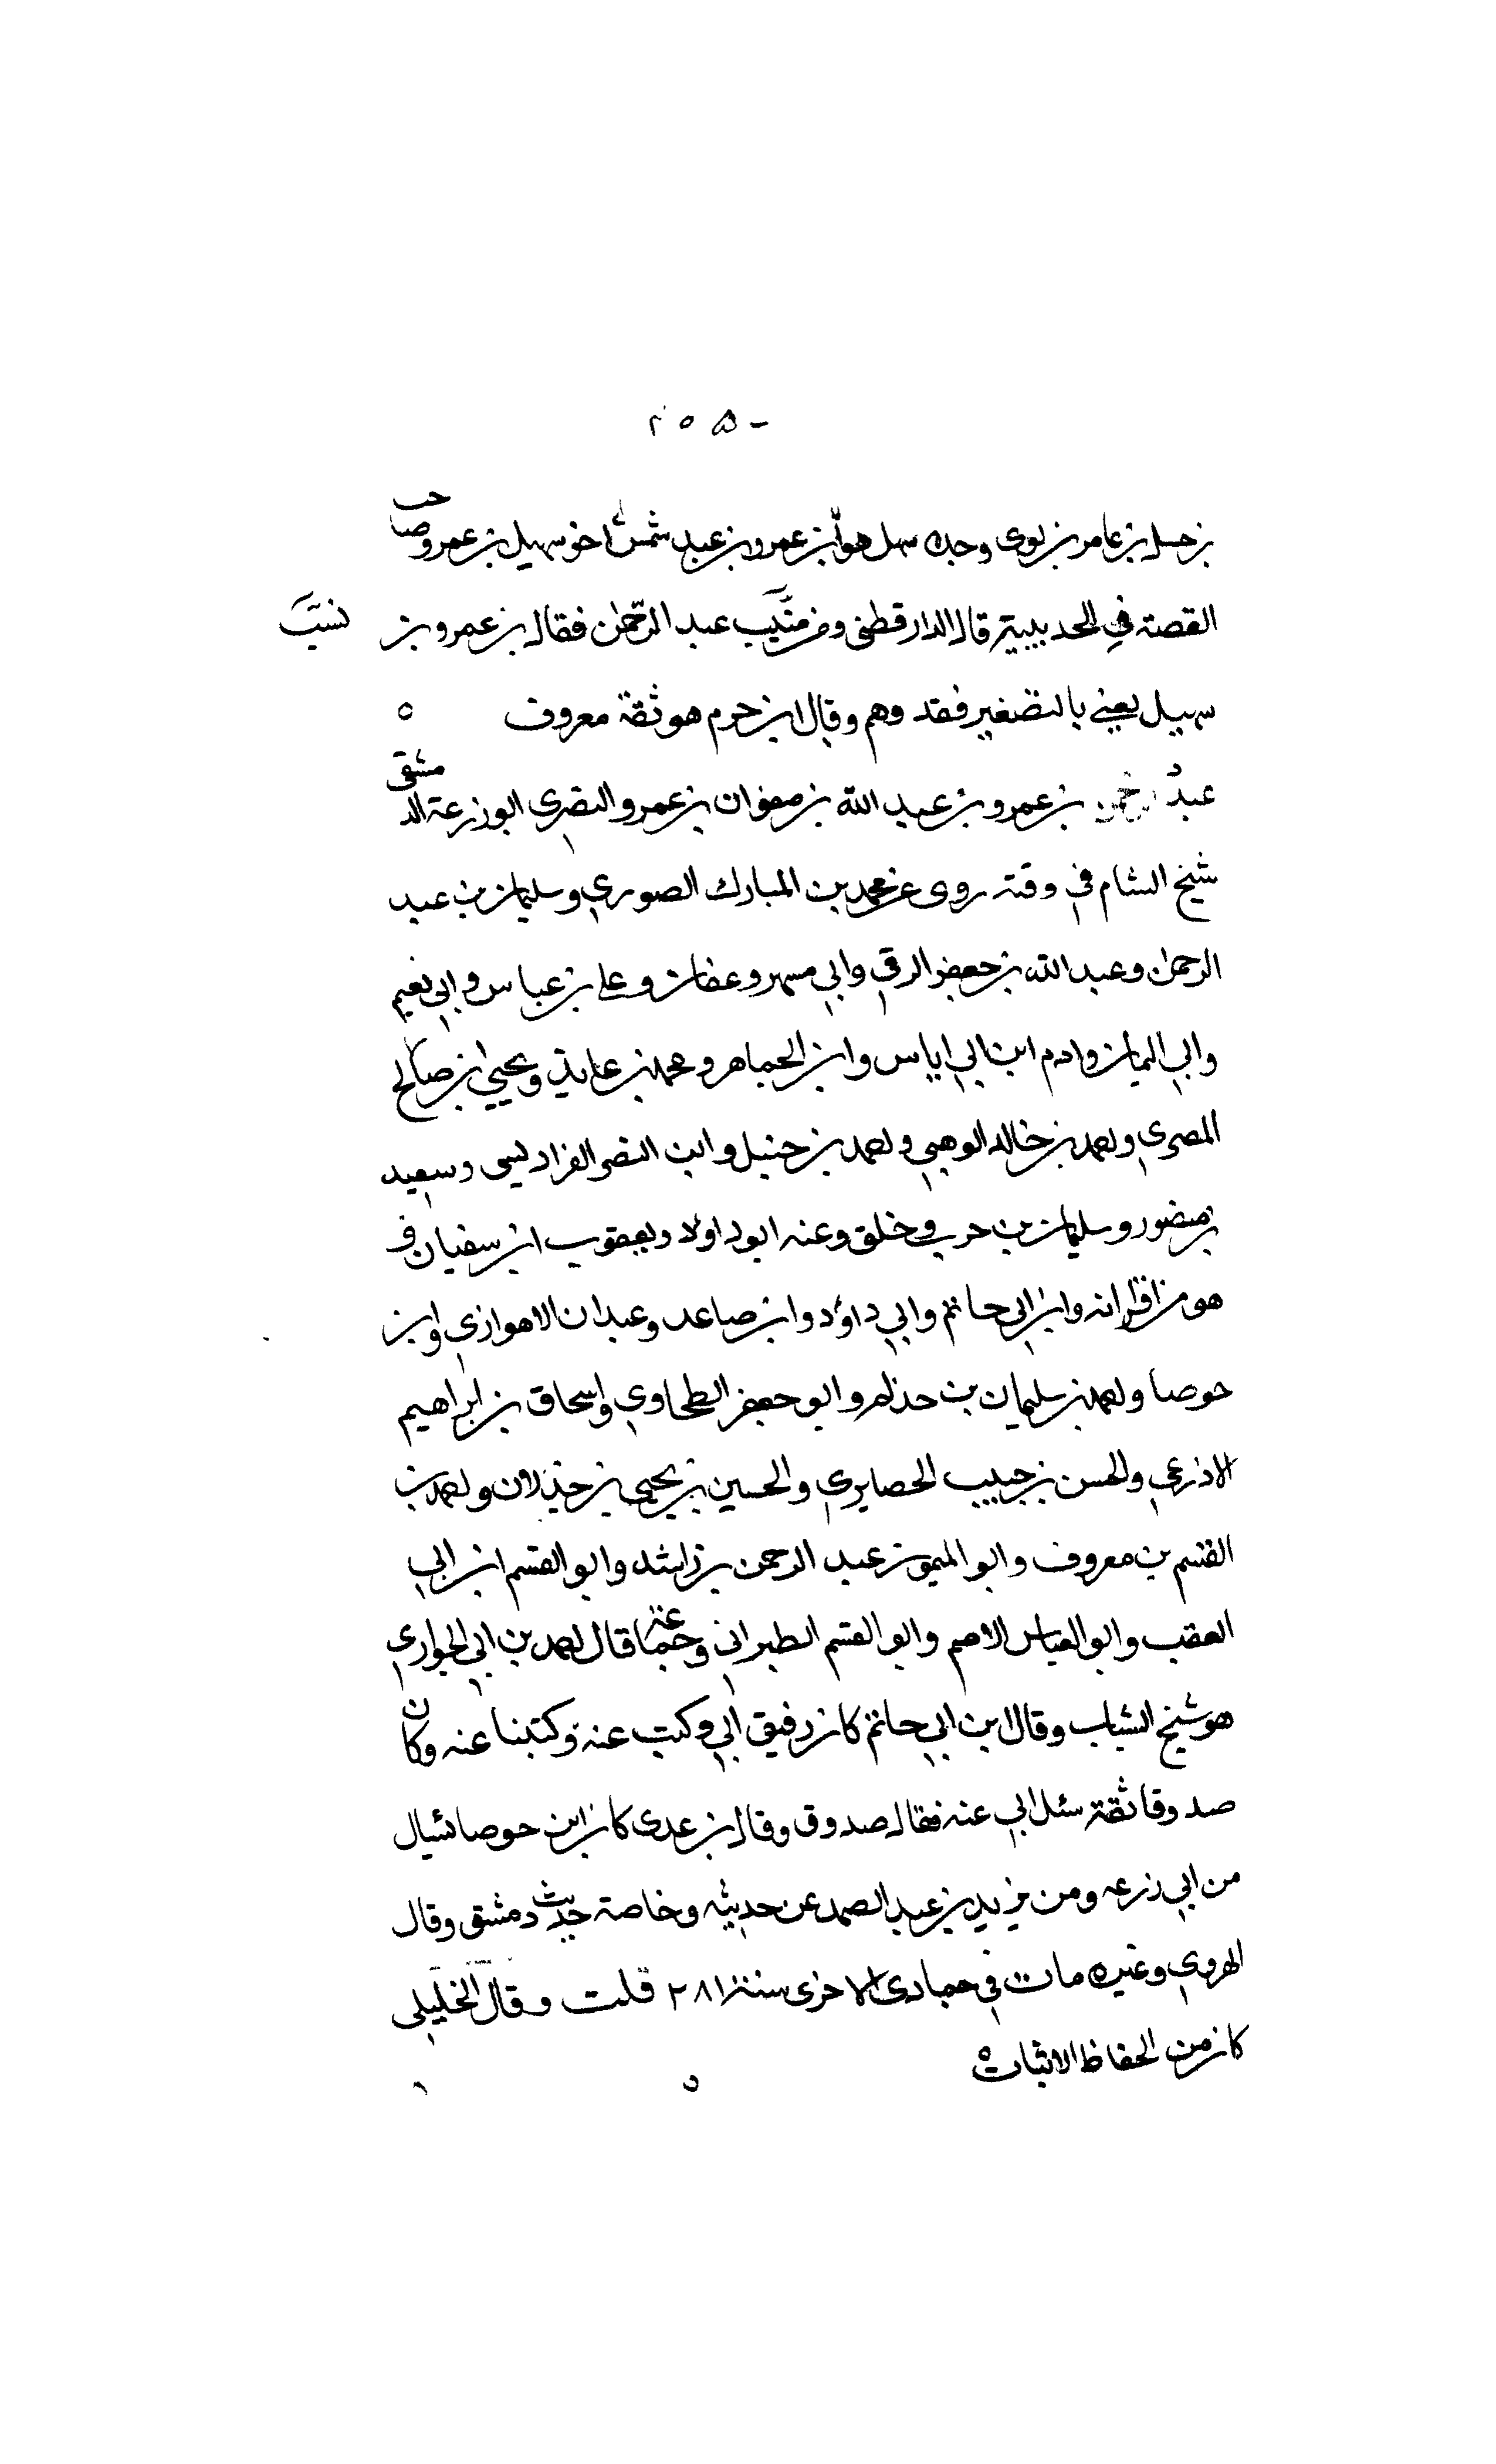 بن حسل بن عامر بن لوى وجده سهل هو ابن عمرو بن عبد شمس اخو سهيل بن عمرو صاحب
القصة في الحديبية قال الدارقطني ومن نسب عبد الرحمن فقال بن عمرو بن
سهيل يعني بالتصغير فقد وهم وقال ابن حزم هو ثقة معروف ه
عبد الرحمن بن عمرو بن عبد الله بن صفوان بن عمرو النصري ابو زرعة الدمشقى
شيخ الشام في وقته روى عن محمد بن المبارك الصوري وسليمان بن عبد
الرحمن وعبد الله بن جعفر الرقي وابي مسهر وعفان وعلي بن عباس وابي نعيم
وابي اليمان وادم ابن ابي اياس وابن الجماهر ومحمد بن عايذ ويحيى ابن صالح
المصري واحمد بن خالد الوهبي واحمد بن حنبل وابن النضر الفراديسى وسعيد
بن منصور وسليمان بن حرب في خلق وعنه ابو داؤد ويعقوب ابن سفيان و
هو من اقرانه وابن ابي حاتم وابي داؤد وابن صاعد وعبدان الاهوازي وابن
حوصا واحمد بن سليمان بن حذلم وابو جعفر الطحاوي واسحاق بن ابراهيم
الاذرعي والحسن بن حبيب الحصايري والحسين بن يحيى بن جذلان واحمد بن
القسم بن معروف وابو الميمون عبد الرحمن بن راشد وابو القسم ابن ابي
العقب وابو العباس الاصم وابو القسم الطبراني وجماعة قال احمد بن ابي الحواري
هو شيخ الشباب وقال ابن ابي حاتم كان رفيق ابي وكتب عنه وكتبنا عنه وكان
صدوقا ثقة سئل ابي عنه فقال صدوق وقال بن عدى كان ابن حوصا تسال
من ابي زرعه ومن يزيد بن عبد الصمد عن حديثه وخاصة حديث دمشق وقال
الهروي وغيره مات في جمادى الاخرى سنة ٢٨١ قلت وقال الخليلى
كان من الحفاظ الاثبات ه